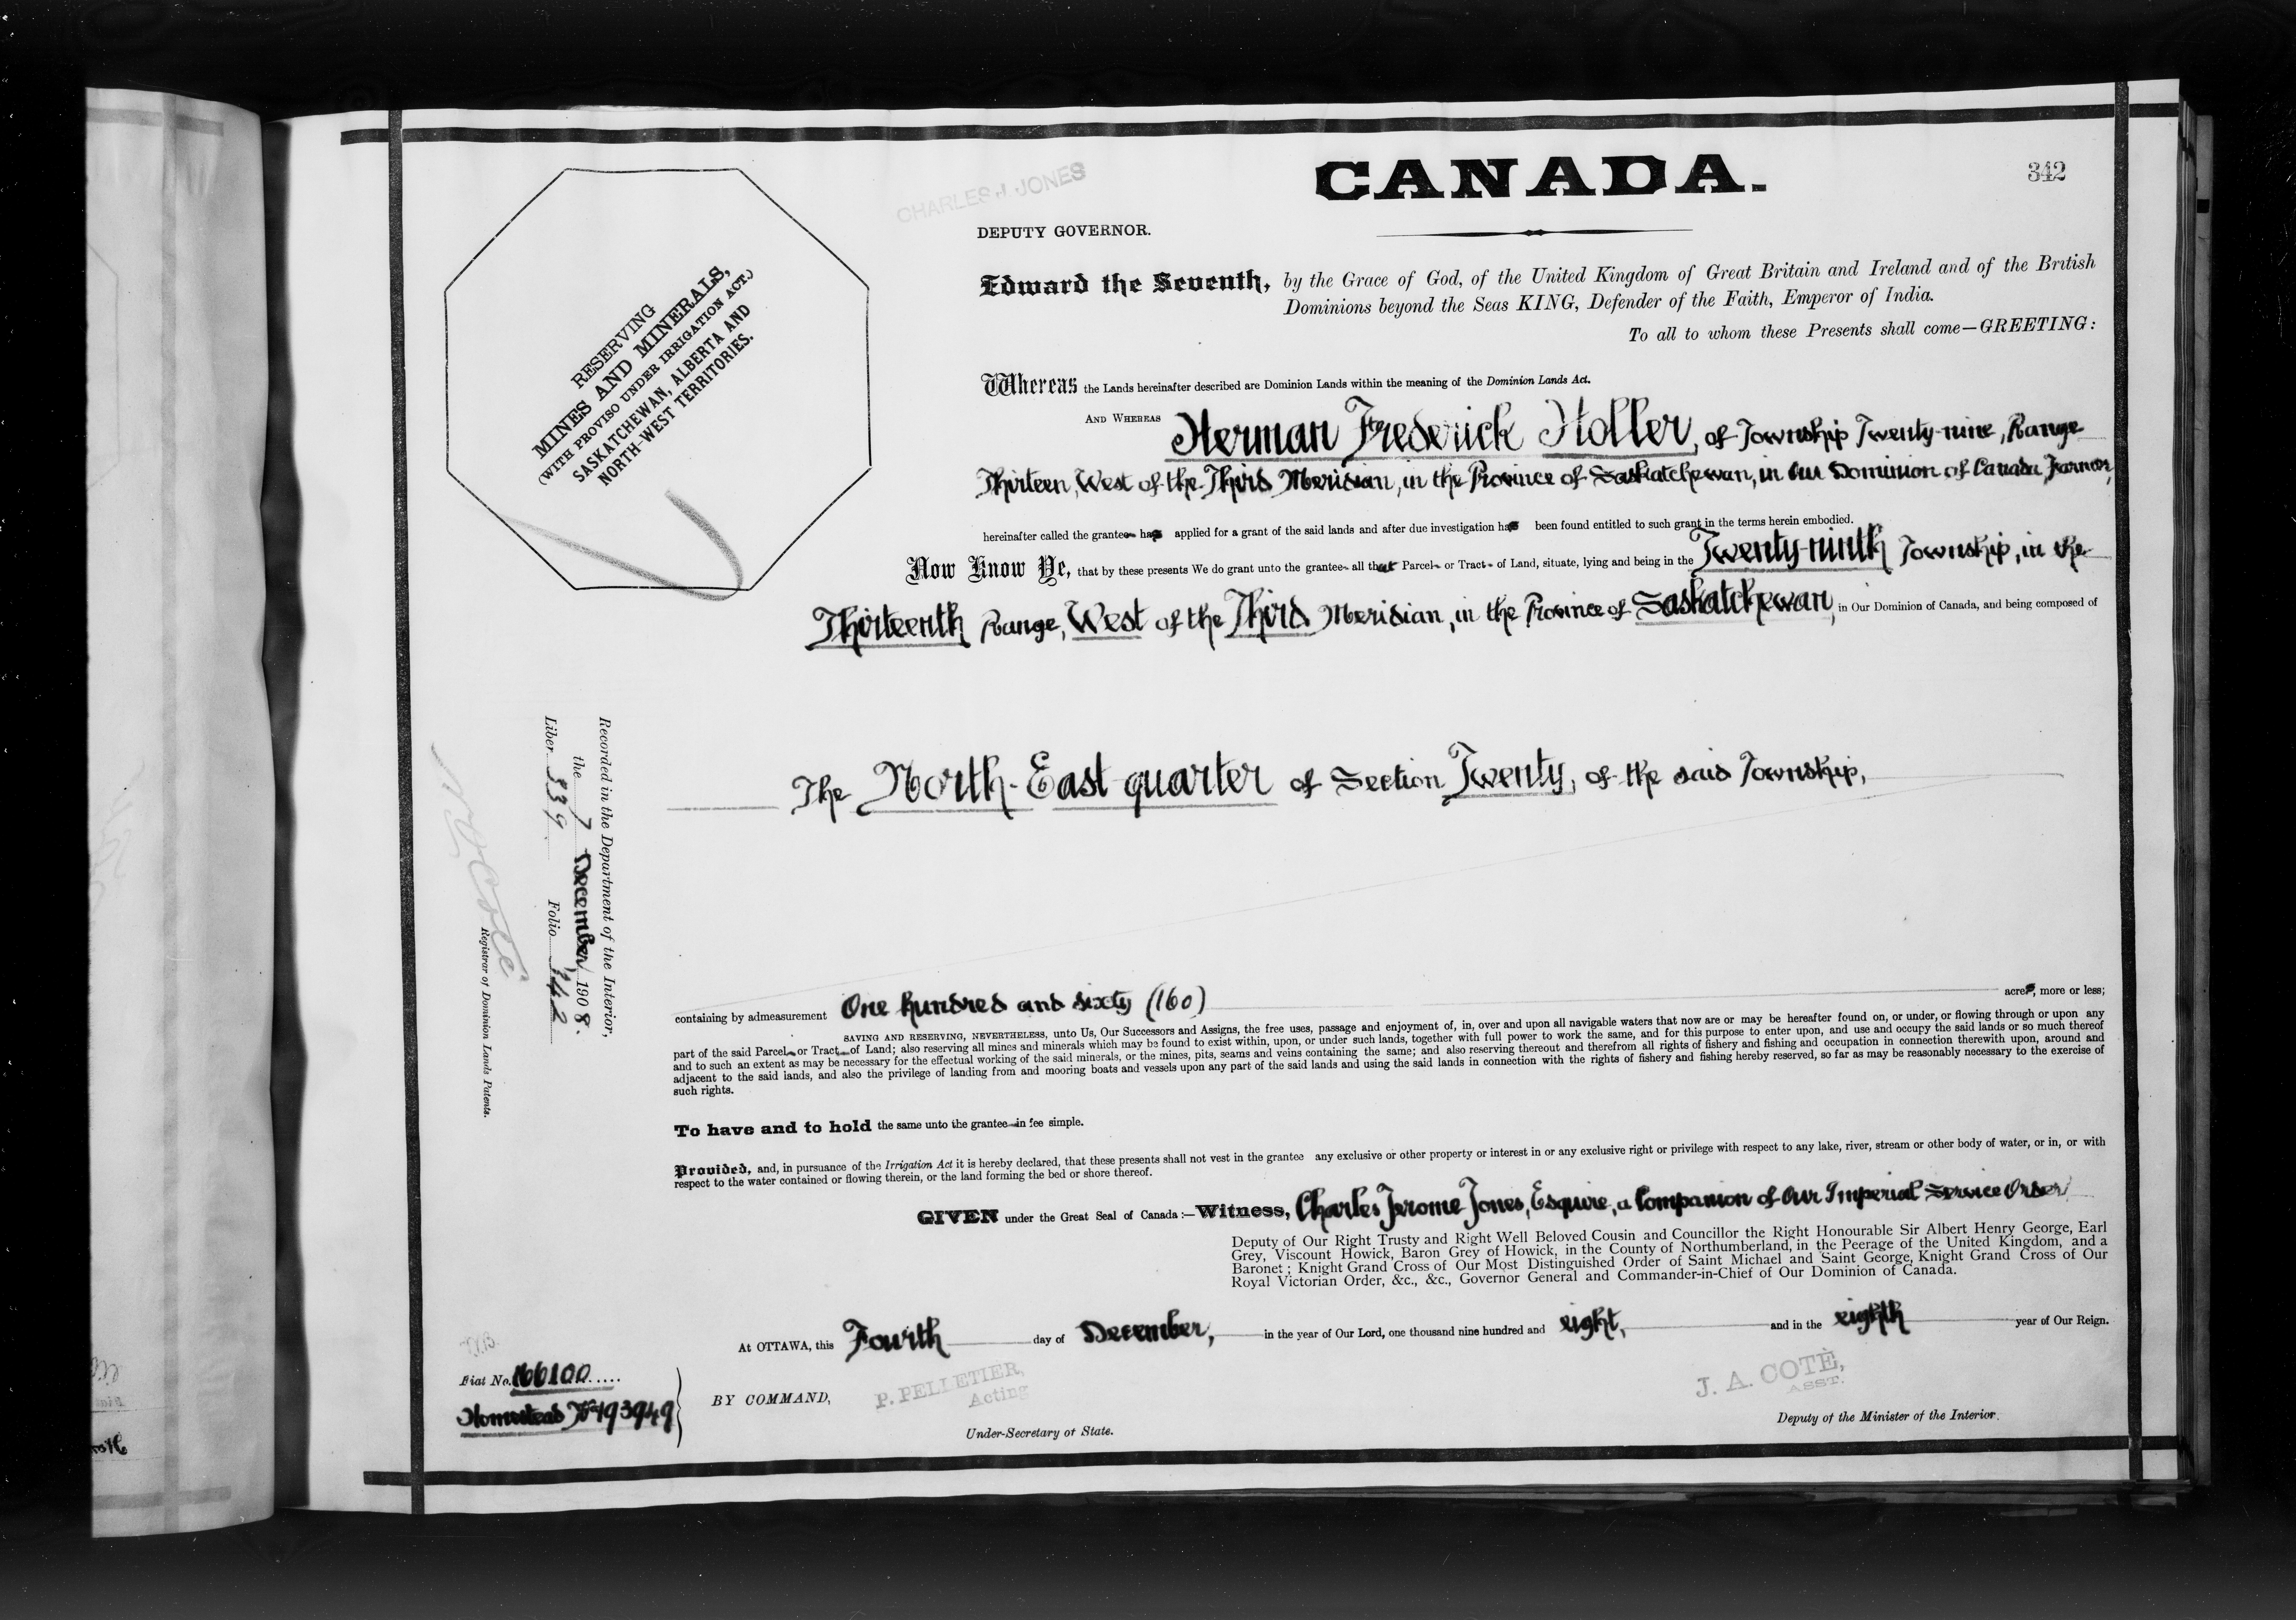 CANADA.
342
CHARLES J. JONES
DEPUTY GOVERNOR.
RESERVING
MINES AND MINERALS,
(WITH PROVISO UNDER IRRIGATION ACT.)
SASKATCHEWAN, ALBERTA AND
NORTH-WEST TERRITORIES.
Edward the Seventh, by the Grace of God, of the United Kingdom of Great Britain and Ireland and of the British
Dominions beyond the Seas KING, Defender of the Faith, Emperor of India.
To all to whom these Presents shall come—GREETING:
Whereas the Lands hereinafter described are Dominion Lands within the meaning of the Dominion Lands Act.
AND WHEREAS Herman Frederick Holler, of Township Twenty-nine, Range
Thirteen, West of the Third Meridian, in the Province of Saskatchewan, in Our Dominion of Canada, Farmer,
hereinafter called the grantee has applied for a grant of the said lands and after due investigation has been found entitled to such grant in the terms herein embodied.
Now Know Ye, that by these presents We do grant unto the grantee all that Parcel or Tract of Land, situate, lying and being in the Twenty-ninth Township, in the
Thirteenth Range, West of the Third Meridian, in the Province of Saskatchewan, in Our Dominion of Canada, and being composed of
The North-East quarter of Section Twenty, of the said Township,
Recorded in the Department of the Interior,
the 7 December 1908.
Liber 339 Folio 342
N O Coté
Registrar of Dominion Lands Patents.
containing by admeasurement One hundred and sixty (160) acres, more or less;
SAVING AND RESERVING, NEVERTHELESS, unto Us, Our Successors and Assigns, the free uses, passage and enjoyment of, in, over and upon all navigable waters that now are or may be hereafter found on, or under, or flowing through or upon any
part of the said Parcel or Tract of Land; also reserving all mines and minerals which may be found to exist within, upon, or under such lands, together with full power to work the same, and for this purpose to enter upon, and use and occupy the said lands or so much thereof
and to such an extent as may be necessary for the effectual working of the said minerals, or the mines, pits, seams and veins containing the same; and also reserving thereout and therefrom all rights of fishery and fishing and occupation in connection therewith upon, around and
adjacent to the said lands, and also the privilege of landing from and mooring boats and vessels upon any part of the said lands and using the said lands in connection with the rights of fishery and fishing hereby reserved, so far as may be reasonably necessary to the exercise of
such rights.
To have and to hold the same unto the grantee in fee simple.
Provided, and, in pursuance of the Irrigation Act it is hereby declared, that these presents shall not vest in the grantee any exclusive or other property or interest in or any exclusive right or privilege with respect to any lake, river, stream or other body of water, or in, or with
respect to the water contained or flowing therein, or the land forming the bed or shore thereof.
GIVEN under the Great Seal of Canada:—Witness, Charles Jerome Jones, Esquire, a Companion of Our Imperial Service Order
Deputy of Our Right Trusty and Right Well Beloved Cousin and Councillor the Right Honourable Sir Albert Henry George, Earl
Grey, Viscount Howick, Baron Grey of Howick, in the County of Northumberland, in the Peerage of the United Kingdom, and a
Baronet; Knight Grand Cross of Our Most Distinguished Order of Saint Michael and Saint George, Knight Grand Cross of Our
Royal Victorian Order, &c., &c., Governor General and Commander-in-Chief of Our Dominion of Canada.
At OTTAWA, this Fourth day of December, in the year of Our Lord, one thousand nine hundred and eight, and in the eighth year of Our Reign.
Fiat No. 166100
Homestead No 493949
BY COMMAND,
P. PELLETIER,
Acting
Under-Secretary of State.
J. A. COTÉ,
ASST.
Deputy of the Minister of the Interior.